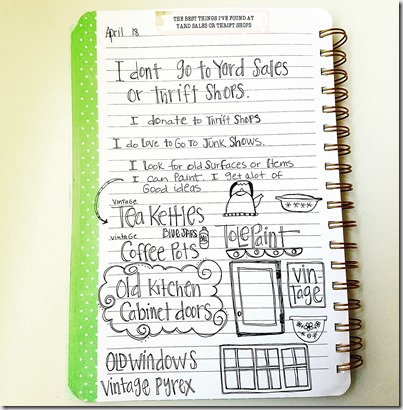 THE BEST THINGS I'VE FOUND AT
YARD SALES OR THRIFT SHOPS
April 18
I dont go to Yard Sales
or Thrift Shops.
I donate to Thrift Shops
I do Love to Go To Junk Shows.
I look for old Surfaces or Items
I can Paint. I get alot of
Good ideas
Vintage
Tea Kettles
vintage
BLUE JARS
Coffee Pots
Tole Paint
Old Kitchen
Cabinet doors
vin
tage
OLD WINDOWS
vintage Pyrex